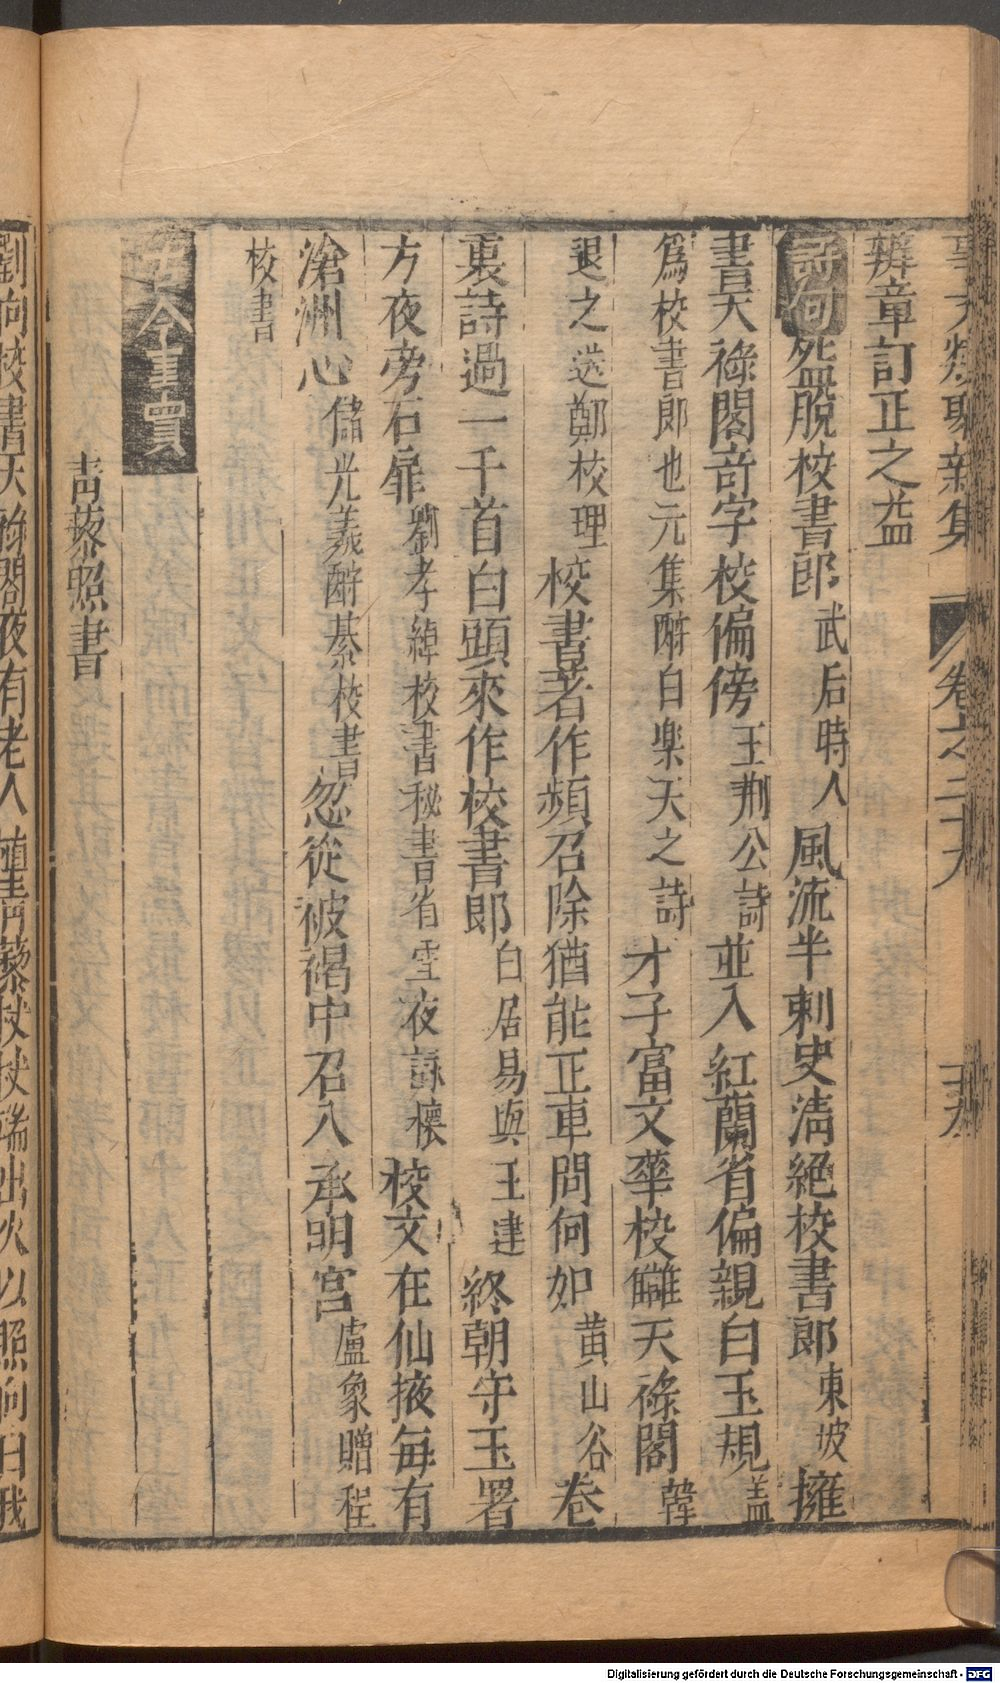 事文類聚新集 卷之二十
辨章訂正之益
詩句 盌脫校書郎 武后時人 風流半刺史淸絕校書郎 東坡 擁
書天祿閣奇字校偏傍 王荆公詩 並入紅蘭省偏親白玉規 盖
爲校書郎也元集酧白樂天之詩 才子富文華校讎天祿閣 韓
退之送鄭校理 校書著作頻召除猶能正車問何如 黄山谷 卷
裏詩過一千首白頭來作校書郎 白居易與王建 終朝守玉署
方夜旁石扉 劉孝綽校書秘書省雪夜詠懷 校文在仙掖每有
滄洲心 儲光羲酧綦校書 忽從被褐中召入承明宮 盧象贈程
校書
古今事實
靑藜照書
劉向校書天祿閣夜有老人植靑藜杖杖端出火以照向曰我
Digitalisierung gefördert durch die Deutsche Forschungsgemeinschaft - DFG